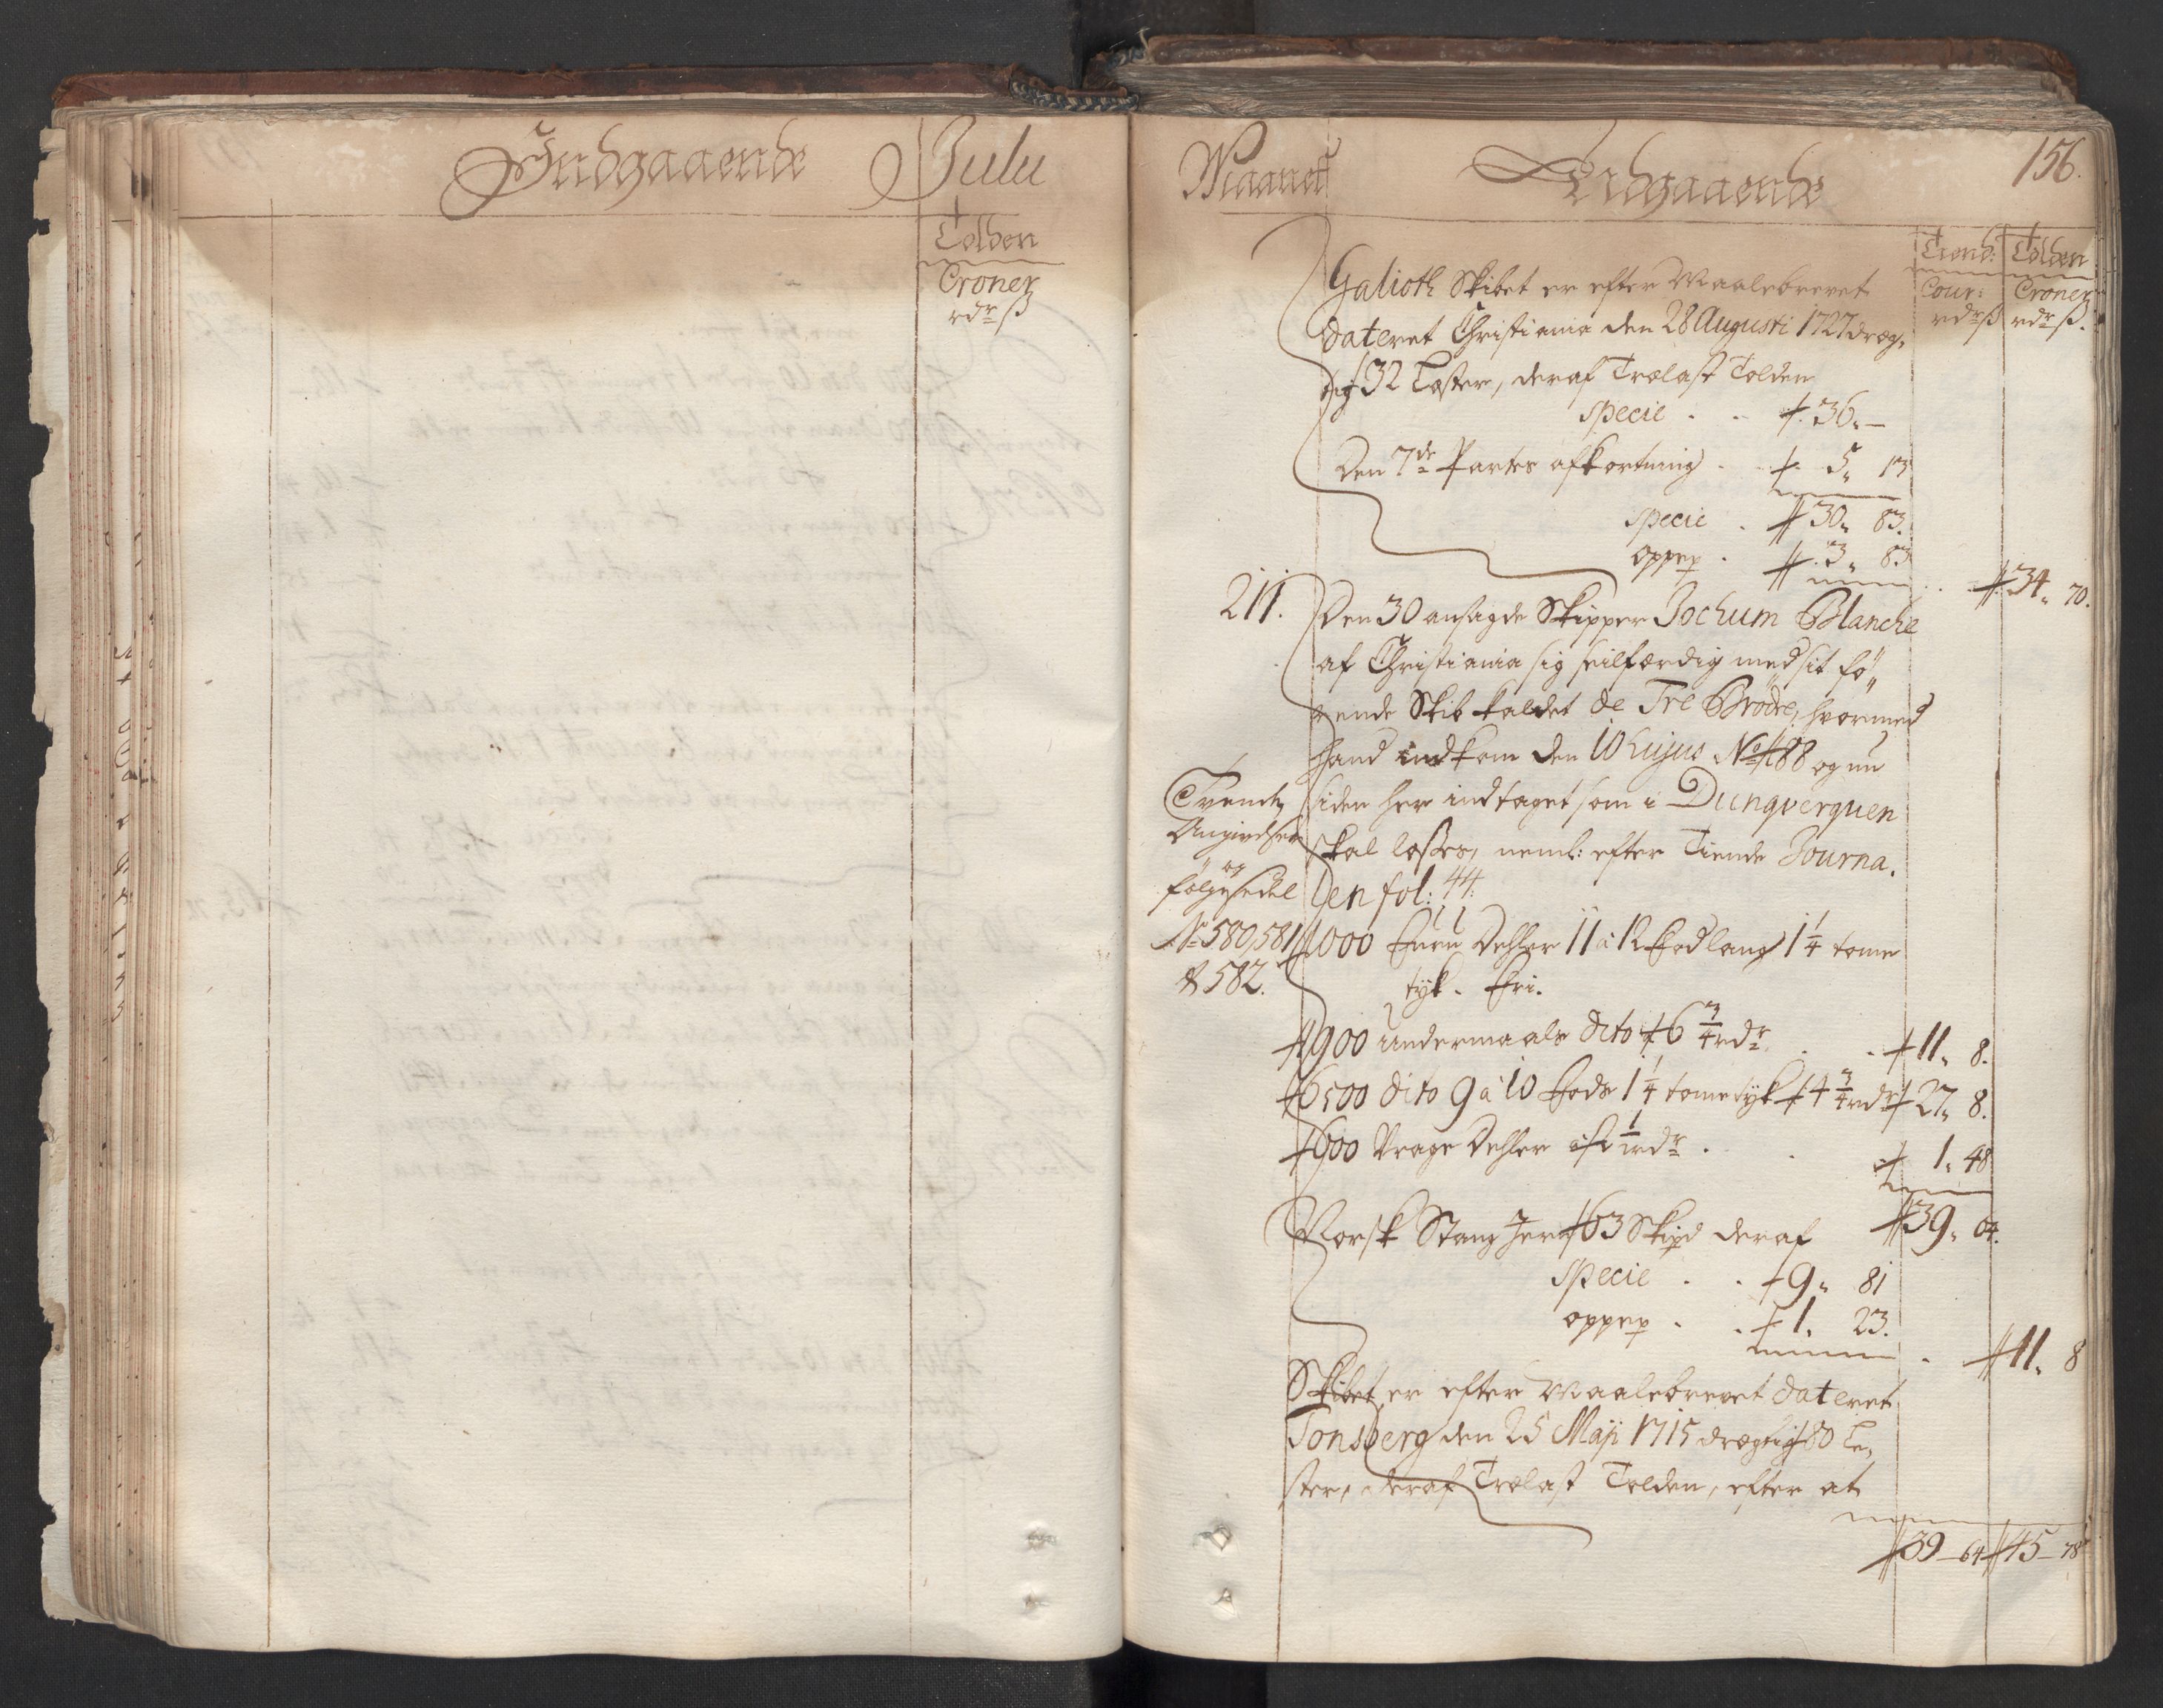 Indgaaende Julii
Tolden
Croner
rdr ß
Maanet Udgaaende 156.
Tiend: Tolden
Cour: Croner
rdr ß rdr ß.
Galioth Skibet er efter Maalebrevet
dateret Christiania den 28 Augusti 1727 dræg-
tig 32 Læster, deraf Trælast Tolden
specie . . 36„ —
Den 7de Partes afkortning . . 5„ 13
specie . 30„ 83.
opperp . 3„ 83
34„ 70.
211. Den 30 ansagde Skipper Jochum Blanche
af Christiania sig seilfærdig med sit fø„
rende Skib kaldet de Tre Brødre, hvormed
hand indkom den 10 hujus No 188 og nu
siden her indtaget som i Dunqverquen
skal losses, neml: efter Tiende Journa.
len fol: 44.
Tvende
Angivelser
og
følgesedel
No 580, 581
& 582.
1000 Furu Dehler 11 à 12 Fod lang 1 1/4 tome
tyk. Fri.
1900 undermaals dito 6 3/4 rdr . . 11„ 8.
6500 dito 9 à 10 Fods 1 1/4 tome tyk 4 3/4 rdr 27„ 8.
600 Vrage Dehler 1 1/2 rdr . . 1„ 48
39„ 64.
Norsk Stang Jern 63 Skipd deraf
specie . . 9„ 81
opperp . . 1„ 23.
11„ 8
Skibet er efter Maalebrevet dateret
Tonsberg den 25 Maji 1715 drægtig 80 Læ„
ster, deraf Trælast Tolden, efter at
39 — 64 45 — 78